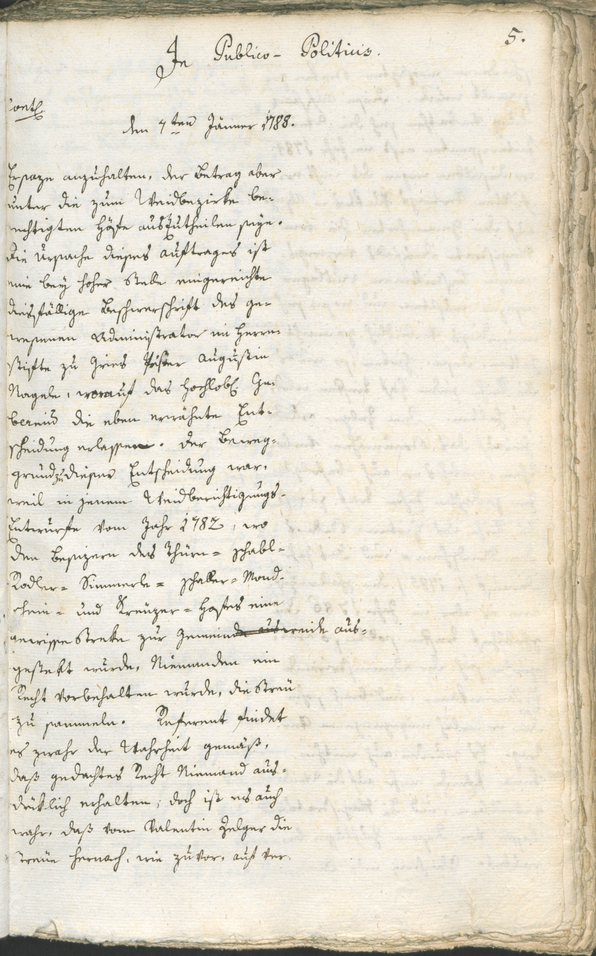 5.
In Publico-Politicis.
den 7ten Jänner 1788.
Ersaze anzuhalten, der Betrag aber
unter die zum Weidbezirke be-
rechtigten Höfe auszutheilen seye.
Die Ursache dieses Auftrages ist
eine bey hoher Stelle eingereichte
diesfällige Beschwerschrift des ge-
wesenen Administrator im Herren-
stifte zu Gries Pater Augustin
Nagele, worauf das Hochlobl. Gu-
bernium die eben erwähnte Ent-
scheidung erlassen. Der Beweg-
grund dieser Entscheidung war,
weil in jenem Weidberichtigungs-
Entwurfe vom Jahr 1782, wo
den Besizern des Thurn- Schabl-
Rodler- Simmerle- Schaller- Mond-
schein- und Kreuzer-Hofes eine
gewisse Streke zur Gemeindsweide aus-
gestekt wurde, Niemanden ein
Recht vorbehalten wurde, die Streü
zu sammeln. Referent findet
es zwahr der Wahrheit gemäß,
daß gedachtes Recht Niemand aus-
drüklich erhalten; doch ist es auch
wahr, daß vom Valentin Zelger die
Streüe hernach, wie zuvor, auf ver-